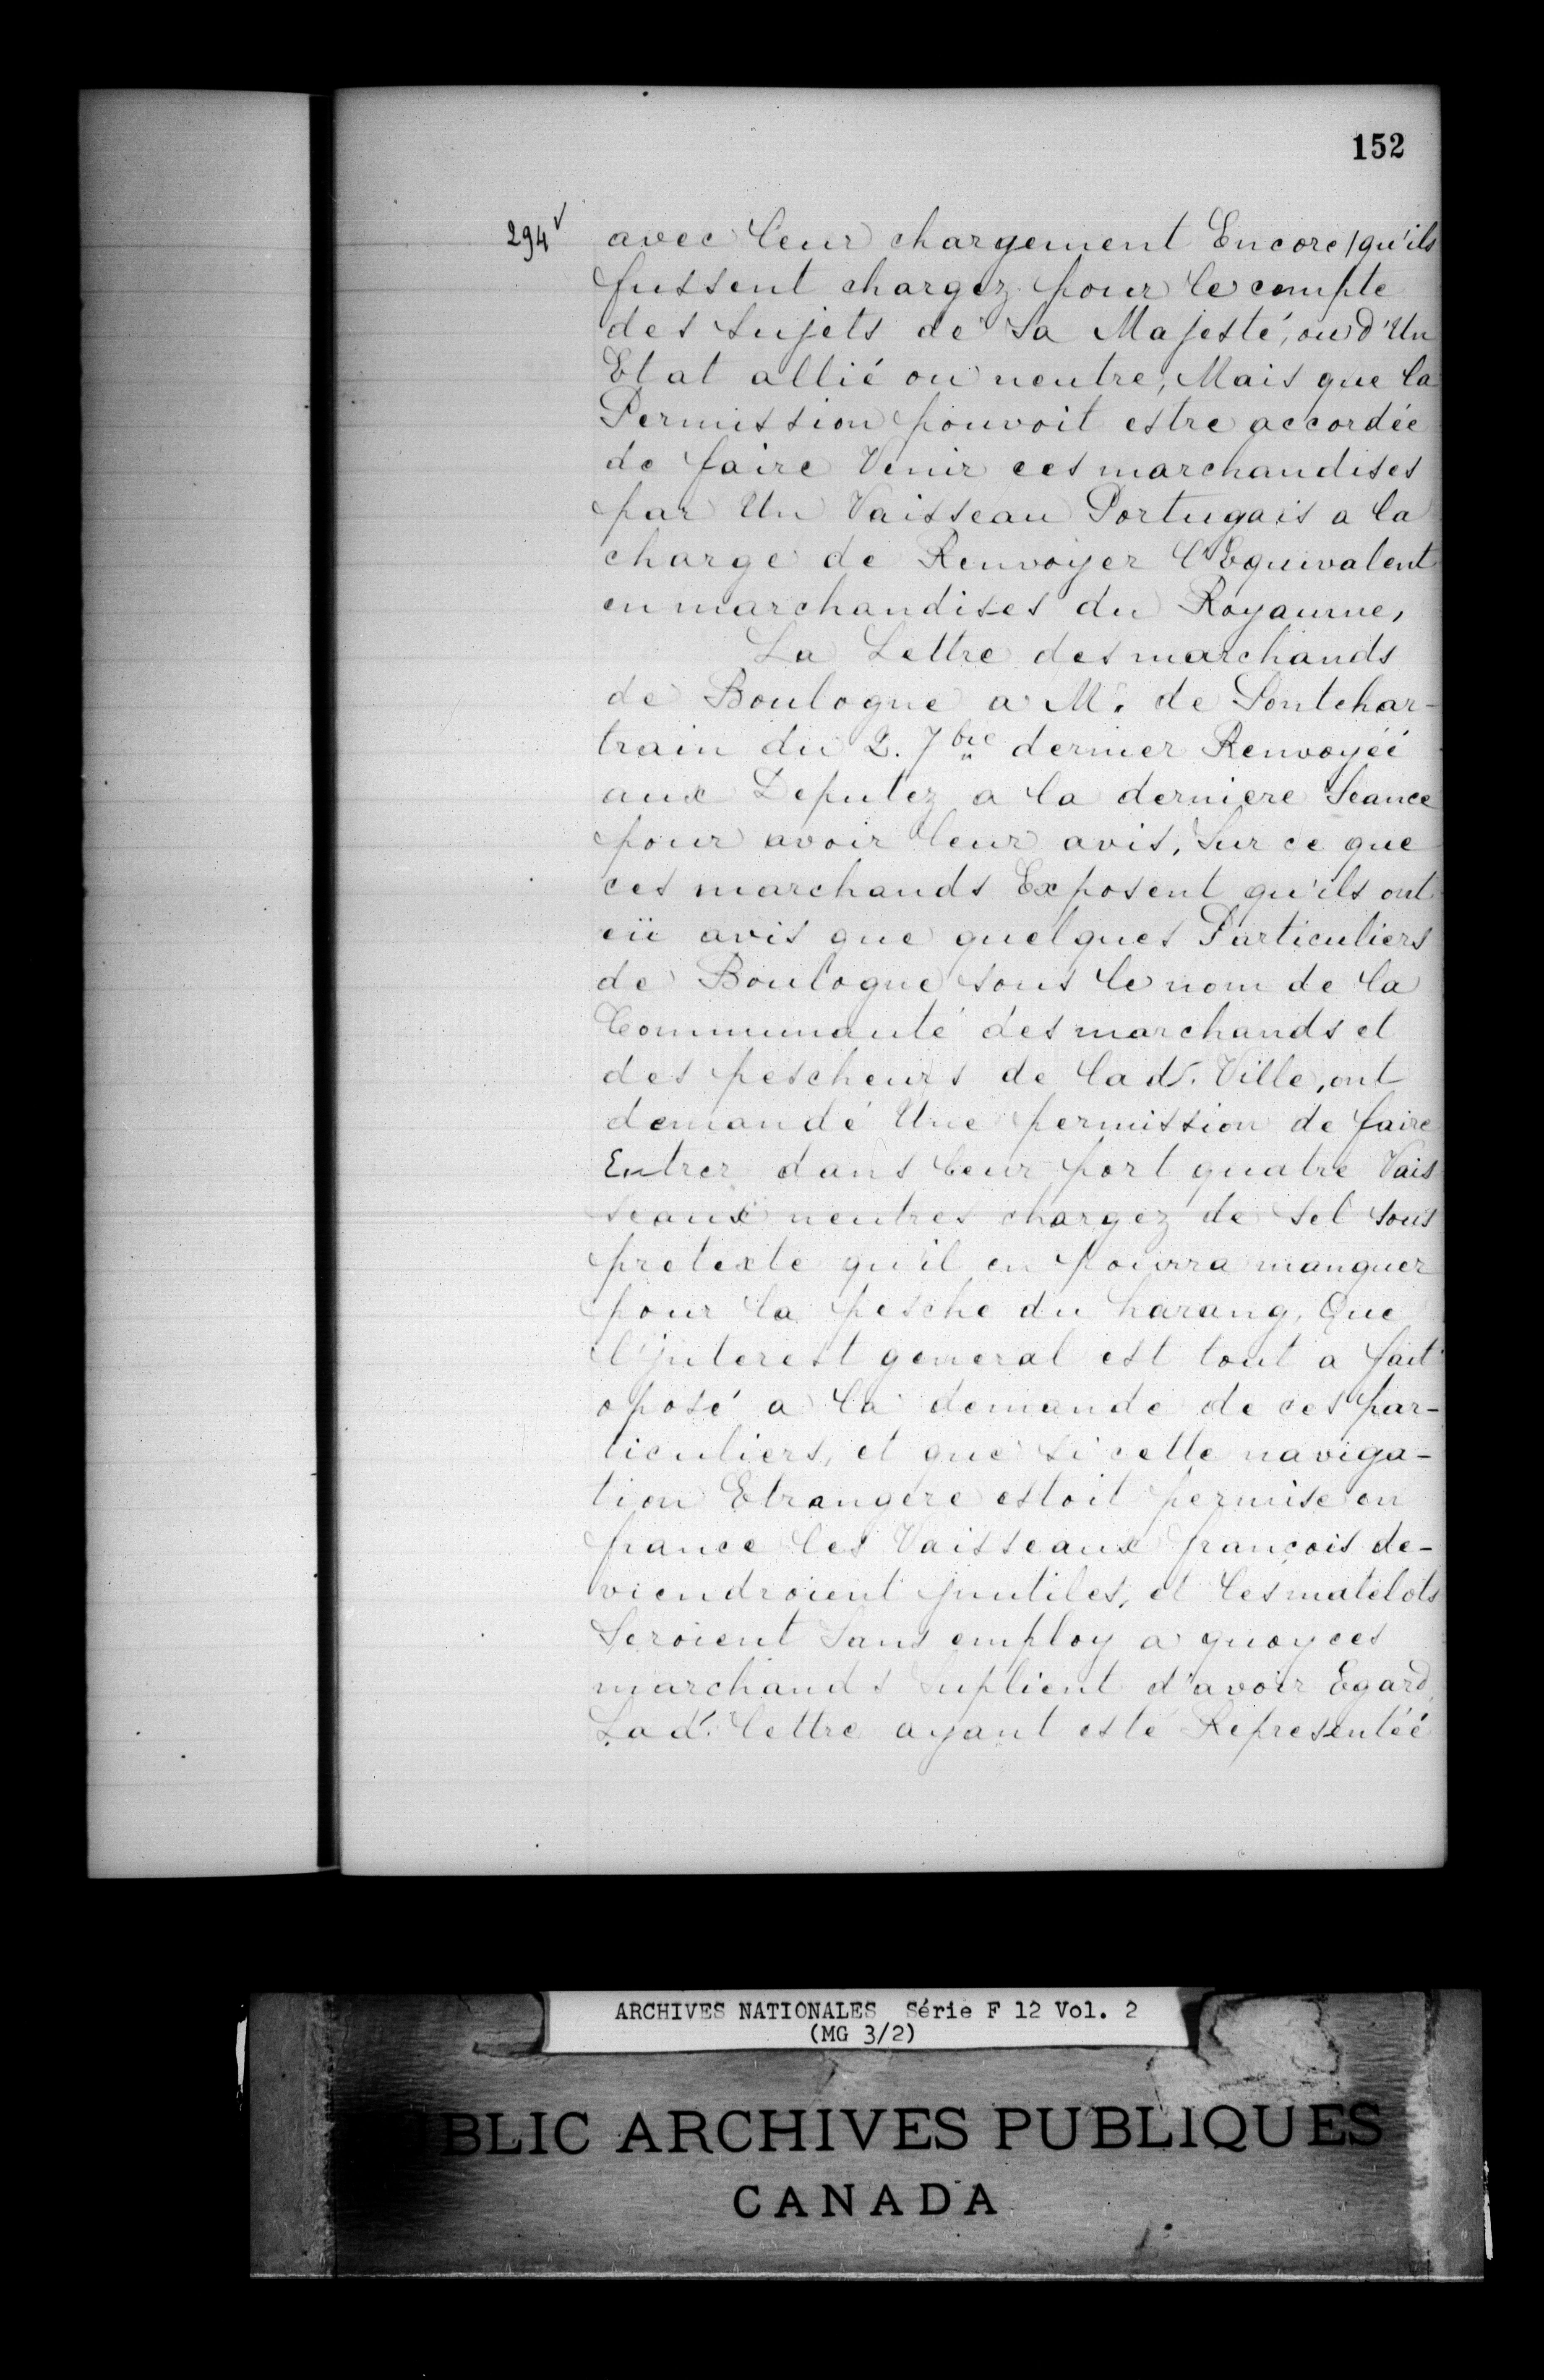 152
294v avec leur chargement Encore qu'ils
fussent chargez pour le compte
des Sujets de Sa Majesté, ou d'Un
Etat allié ou neutre, Mais que la
Permission pouvoit estre accordée
de faire Venir ces marchandises
par Un Vaisseau Portugais a la
charge de Renvoyer l'Equivalent
en marchandises du Royaume,
La Lettre des marchands
de Boulogne a M. de Pontchar-
train du 2. 7bre dernier Renvoyéé
aux Deputez a la derniere Seance
pour avoir leur avis, Sur ce que
ces marchands Exposent qu'ils ont
eü avis que quelques Particuliers
de Boulogne sous le nom de la
Communauté des marchands et
des pescheurs de lad. Ville, ont
demandé Une permission de faire
Entrer dans leur port quatre Vais
seaux neutres chargez de Sel sous
pretexte qu'il en pourra manquer
pour la pesche du harang, Que
l'jnterest general est tout a fait
oposé a la demande de ces par-
ticuliers, et que si cette naviga-
tion Etrangere estoit permise en
france les Vaisseaux françois de-
viendroient jnutiles, et les matelots
Seroient Sans employ a quoy ces
marchands Suplient d'avoir Egard,
Lad. lettre ayant esté Representéé
ARCHIVES NATIONALES Série F 12 Vol. 2
(MG 3/2)
BLIC ARCHIVES PUBLIQUES
CANADA